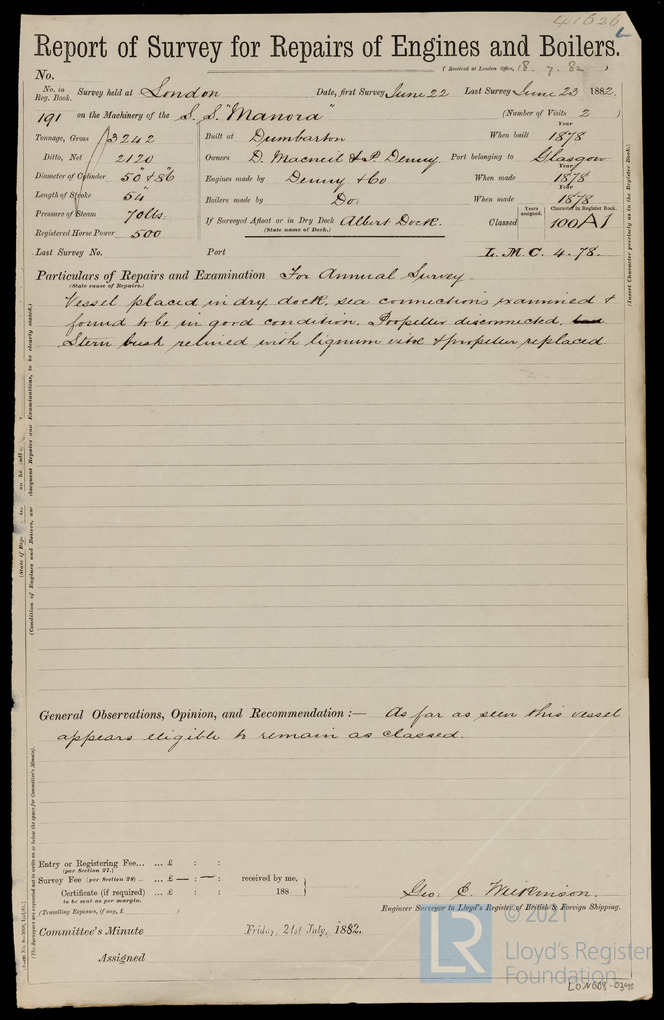 41626
Report of Survey for Repairs of Engines and Boilers.
(Received at London Office, 18. 7. 82)
No.
No. in Reg. Book. Survey held at London Date, first Survey June 22 Last Survey June 23 1882
191 on the Machinery of the S.S. "Manora" (Number of Visits 2)
Tonnage, Gross 3242 Built at Dumbarton When built Year 1878
Ditto, Net 2120 Owners D. Macneil & P. Denny Port belonging to Glasgow
Diameter of Cylinder 50" & 86" Engines made by Denny & Co When made Year 1878
Length of Stroke 54" Boilers made by Do. When made Year 1878
Pressure of Steam 70 lbs. If Surveyed Afloat or in Dry Dock Albert Dock. Classed Years assigned. Character in Register Book. 100A1
(State name of Dock.)
Registered Horse Power 500
Last Survey No. Port L.M.C. 4.78.
Particulars of Repairs and Examination For Annual Survey.
(State cause of Repairs.)
Vessel placed in dry dock, sea connections examined &
found to be in good condition. Propeller disconnected,
Stern bush relined with lignum vitæ & propeller replaced.
General Observations, Opinion, and Recommendation :— As far as seen this vessel
appears eligible to remain as classed.
Entry or Registering Fee... ... £ : :
(per Section 27.)
Survey Fee (per Section 28) .. ... £ — : — : received by me,
Certificate (if required) ... £ : : 188
to be sent as per margin.
(Travelling Expenses, if any, £ )
Geo. C. Wilkinson.
Engineer Surveyor to Lloyd's Register of British & Foreign Shipping.
Committee's Minute Friday, 21st July, 1882.
Assigned
(Insert Character precisely as in the Register Book.)
(The Surveyors are requested not to write on or below the space for Committee's Minute).
© 2021
LR
Lloyd's Register
Foundation